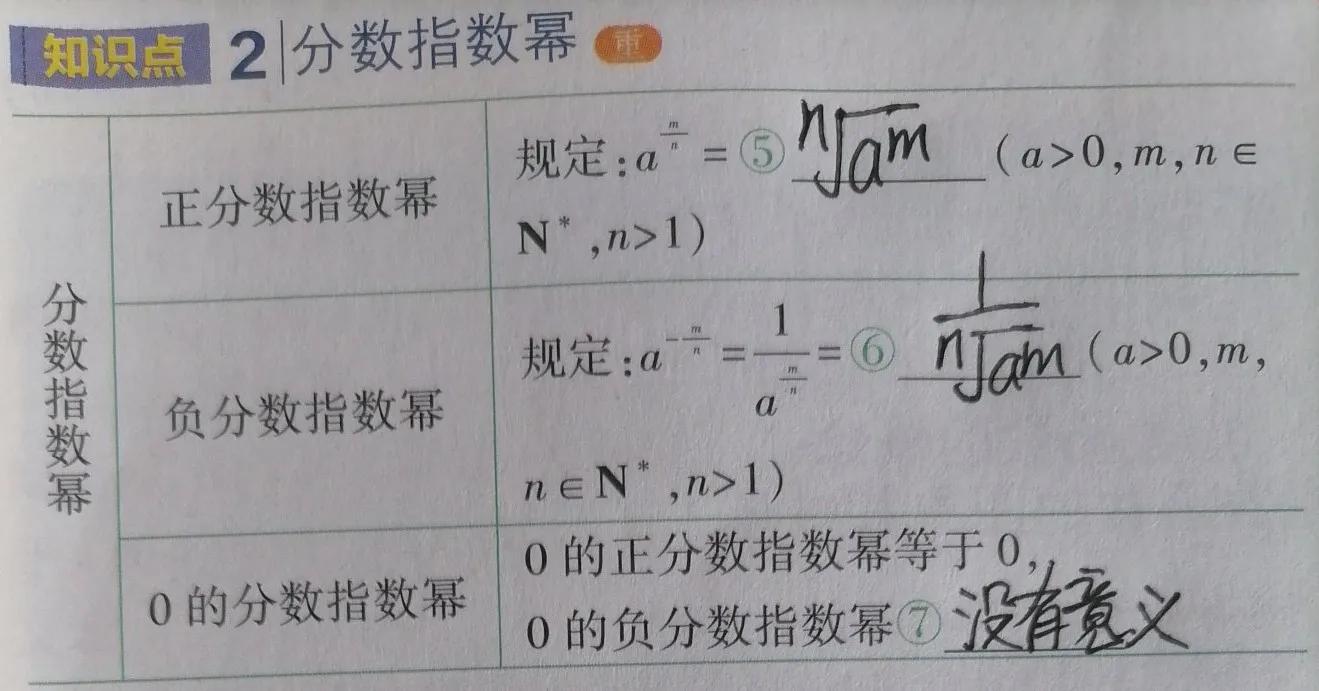 知识点 2 分数指数幂 重
分数指数幂
正分数指数幂
规定:a^{\frac{m}{n}} = ⑤ \sqrt[n]{a^m} (a>0,m,n∈
N*,n>1)
负分数指数幂
规定:a^{-\frac{m}{n}} = \frac{1}{a^{\frac{m}{n}}} = ⑥ \frac{1}{\sqrt[n]{a^m}} (a>0,m,
n∈N*,n>1)
0的分数指数幂
0的正分数指数幂等于0,
0的负分数指数幂⑦没有意义